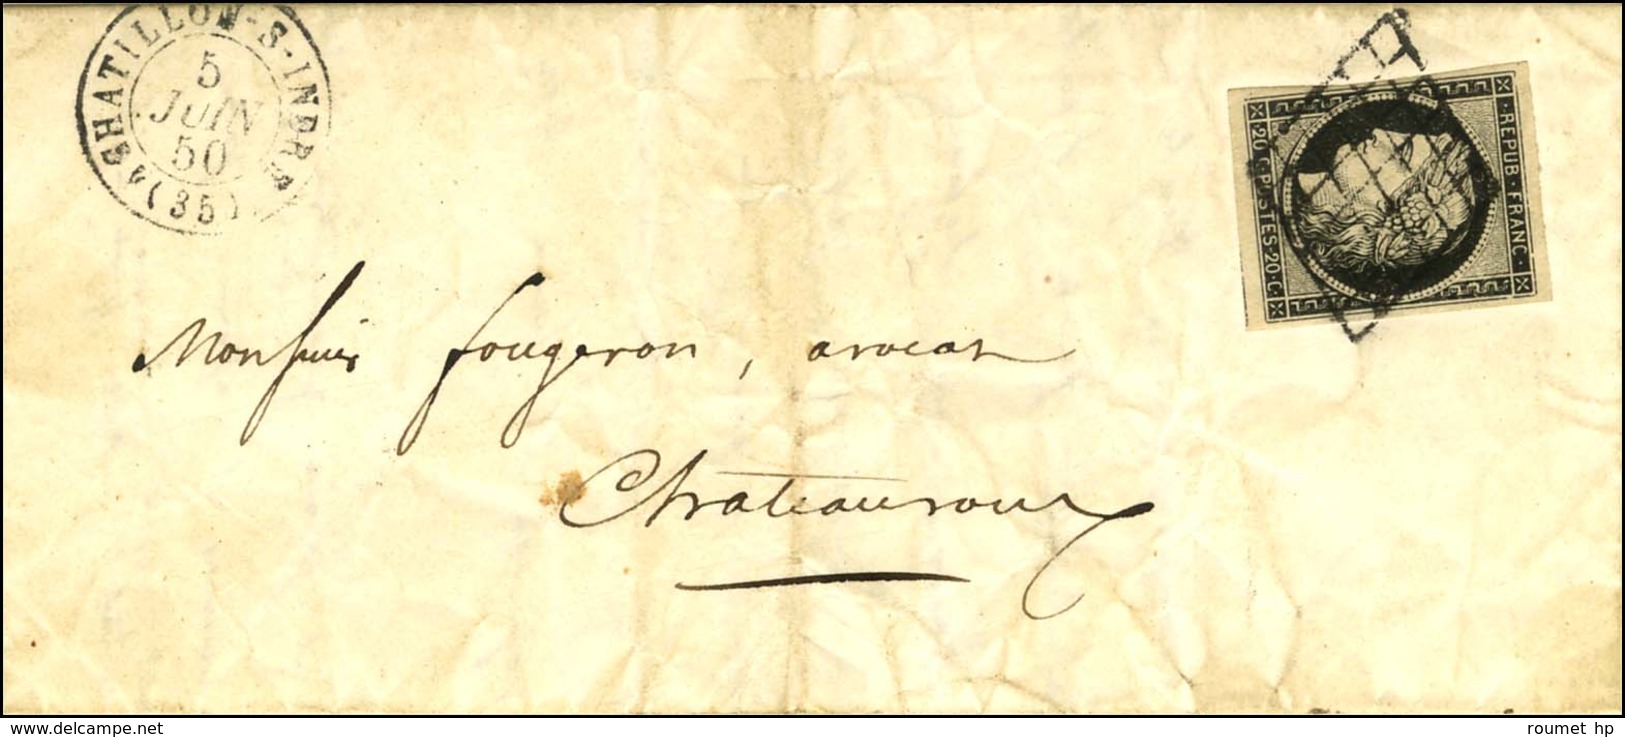 CHATILLON-S-INDRE
5
JUIN
50
(35)
REPUB·FRANC·
20·C·POSTES·20·C·
Monsieur fougeron, avocat
Chateauroux
delcampe.net
roumet hp